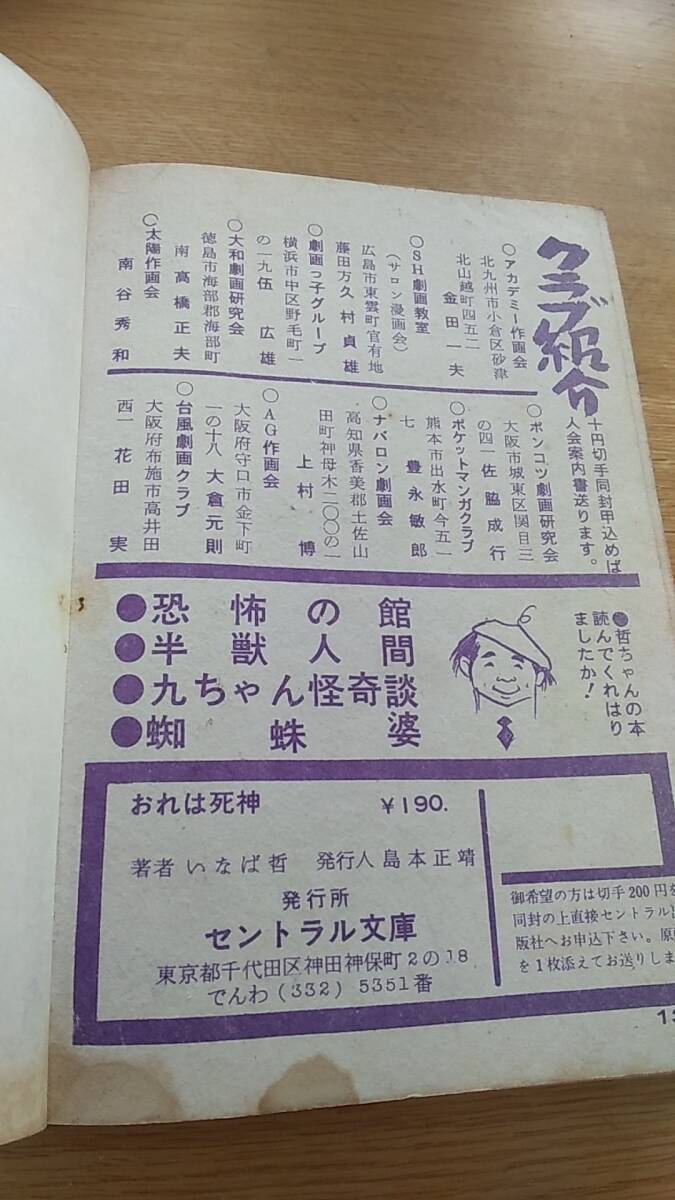 クラブ紹介
十円切手同封甲込めば
入会案内書送ります。
○アカデミー作画会
北九州市小倉区砂津
北山越町四五二
金田一夫
○SH劇画教室
(サロン漫画会)
広島市東雲町官有地
藤田方久村貞雄
○劇画っ子グループ
横浜市中区野毛町一
の一九伍広雄
○大和劇画研究会
徳島市海部郡海部町
南高橋正夫
○太陽作画会
南谷秀和
○ポンコツ劇画研究会
大阪市城東区関目三
の四一佐脇成行
○ポケットマンガクラブ
熊本市出水町今五一
七豊永敏郎
○ナバロン劇画会
高知県香美郡土佐山
田町神母木二〇〇の一
上村博
○AG作画会
大阪府守口市金下町
一の十八大倉元則
○台風劇画クラブ
大阪府布施市高井田
西一花田実
●哲ちゃんの本
読んでくれはり
ましたか!
●恐怖の館
●半獣人間
●九ちゃん怪奇談
●蜘蛛婆
おれは死神 ¥190.
著者 いなば哲 発行人 島本正靖
発行所
セントラル文庫
東京都千代田区神田神保町2の18
でんわ(332)5351番
御希望の方は切手200円を
同封の上直接セントラル
版社へお申込下さい。原
を1枚添えてお送りしま
13